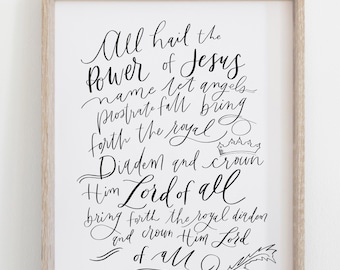 All hail the
Power of Jesus
name let angels
prostrate fall bring
forth the royal
Diadem and crown
Him Lord of all
bring forth the royal diadem
and crown Him Lord
of all